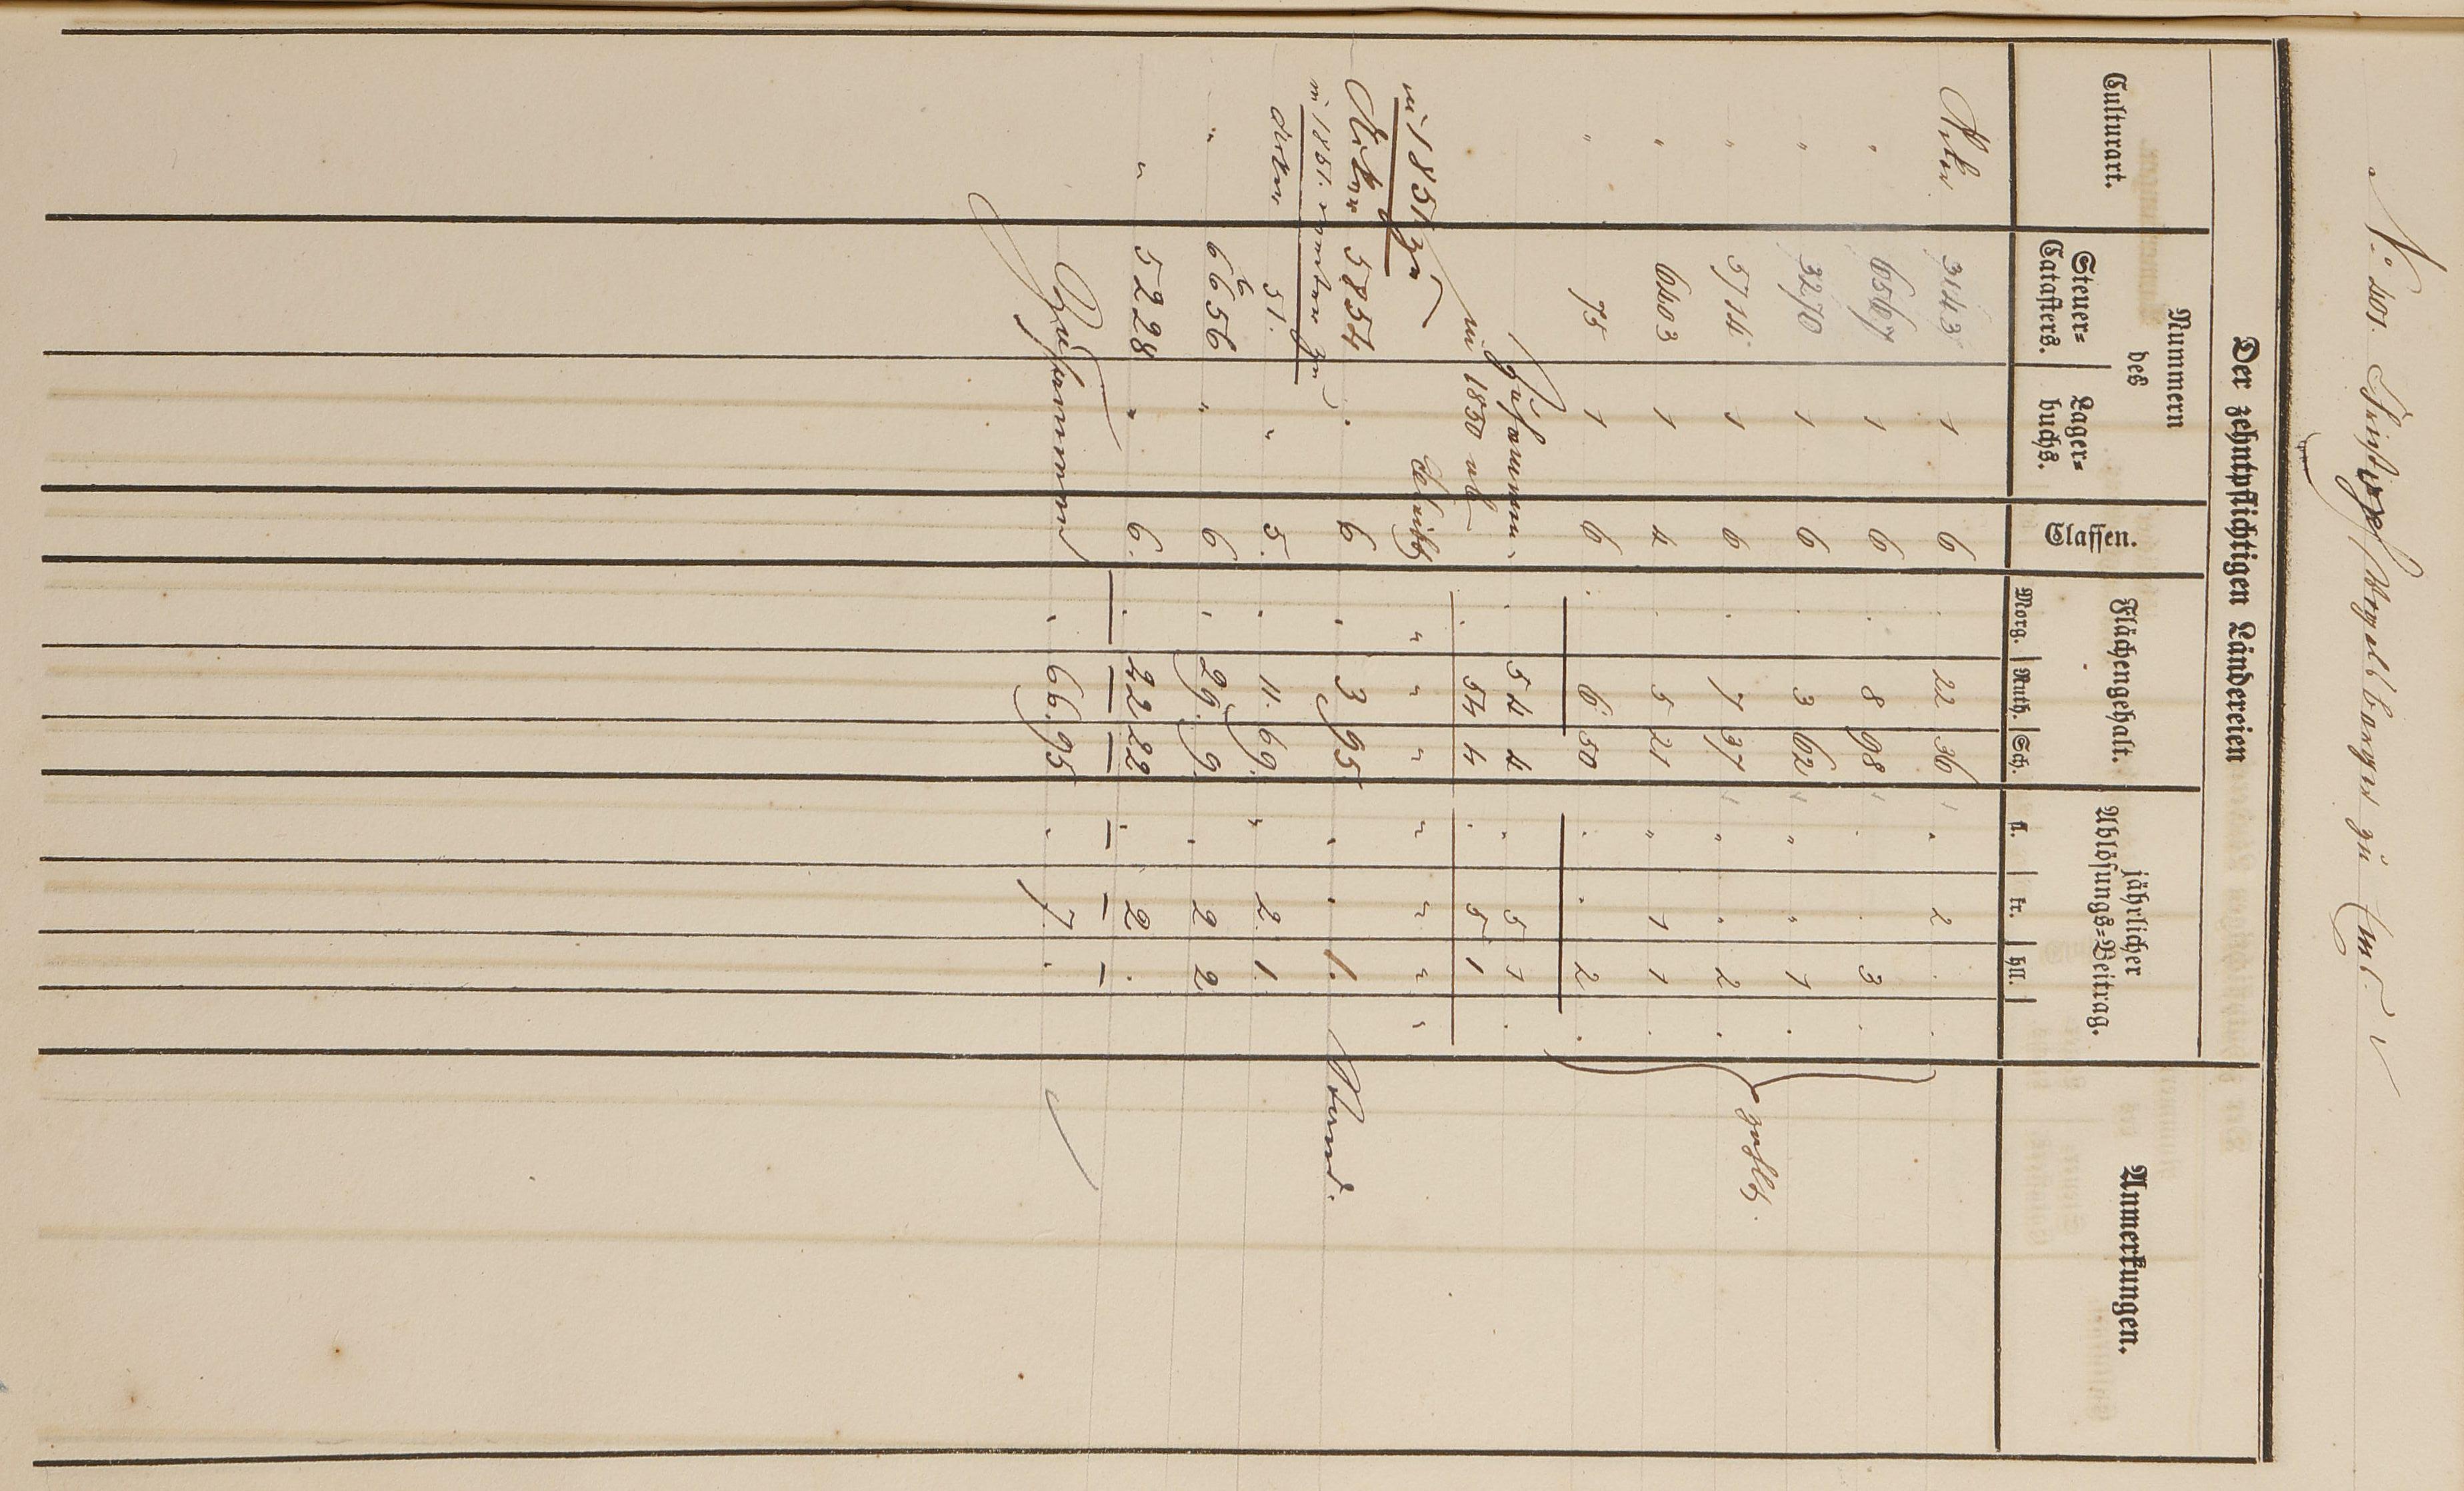 No 401. Christoph Vogelsberger zu Ems.
Der zehntpflichtigen Ländereien
Culturart.
Nummern
des
Steuer=
Catasters.
Lager=
buchs.
Classen.
Flächengehalt.
Morg. Ruth. Sch.
jährlicher
Ablösungs=Beitrag.
fl. kr. hll.
Anmerkungen.
Acker 3143 1 6 . 22 36 " 2 . .
" 6567 1 6 . 8 98 . . 3 .
" 3270 1 6 . 3 62 " " 1 .
" 5714 1 6 . 7 37 " . 2 .
" 6403 1 4 . 5 21 " 1 1 .
" 75 1 6 . 6 50 . . 2 .
gehlt.
Zusammen . 54 4 " 5 1 .
in 1850 ab . 54 4 . 5 1
bleibt " " " " " " "
in 1851 zu
Acker 5854 . 6 . 3 95 " . 1. 
in 1851. weiter zu
51. " 5. " 11. 69. " 2. 1.
" 6656 " 6 " 29. 9. . 2 2
" 5228 " 6. . 22 22 . 2 .
Zusammen " 66. 95 . 7. .